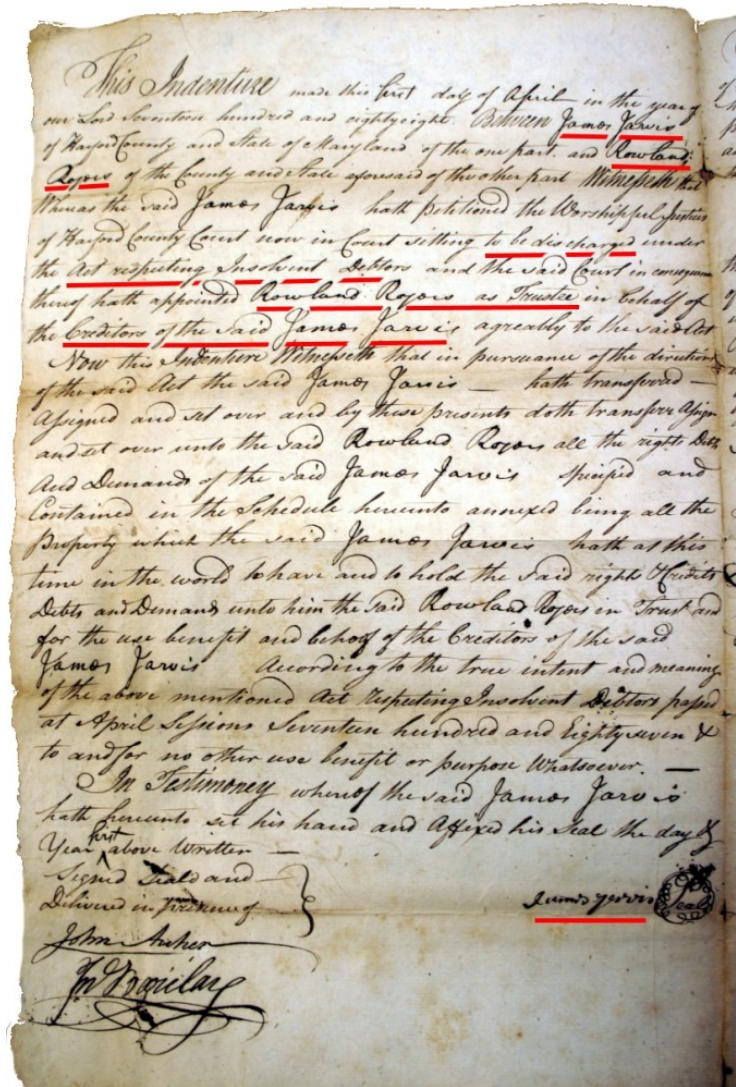 This Indenture made this first day of April in the year of
our Lord Seventeen hundred and eightyeight. Between James Jarvis
of Harford County and State of Maryland of the one part. and Rowland
Rogers of the County and State aforesaid of the other part Witnesseth that
Whereas the said James Jarvis hath petitioned the Worshipful Justices
of Harford County Court now in Court sitting to be discharged under
the Act respecting Insolvent Debtors and the said Court in consequence
thereof hath appointed Rowland Rogers as Trustee in behalf of
the Creditors of the said James Jarvis agreably to the said Act
Now this Indenture Witnesseth that in pursuance of the direction
of the said Act the said James Jarvis — hath transfered —
Assigned and set over and by these presents doth transfere Assign
and set over unto the said Rowland Rogers all the rights Debts
And Demands of the said James Jarvis specified and
Contained in the Schedule hereunto annexed being all the
Property which the said James Jarvis hath at this
time in the world to have and to hold the said rights & Credits
Debts and Demands unto him the said Rowland Rogers in Trust and
for the use benefit and behoof of the Creditors of the said
James Jarvis According to the true intent and meaning
of the above mentioned Act respecting Insolvent Debtors passed
at April Sessions Seventeen hundred and Eighty seven &
to and for no other use benefit or purpose Whatsoever. —
In Testimoney whereof the said James Jarvis
hath hereunto set his hand and Affixed his Seal the day &
Year first above Written —
Signed Seald and —
Delivered in presence of
James Jervis Seal
John Archer